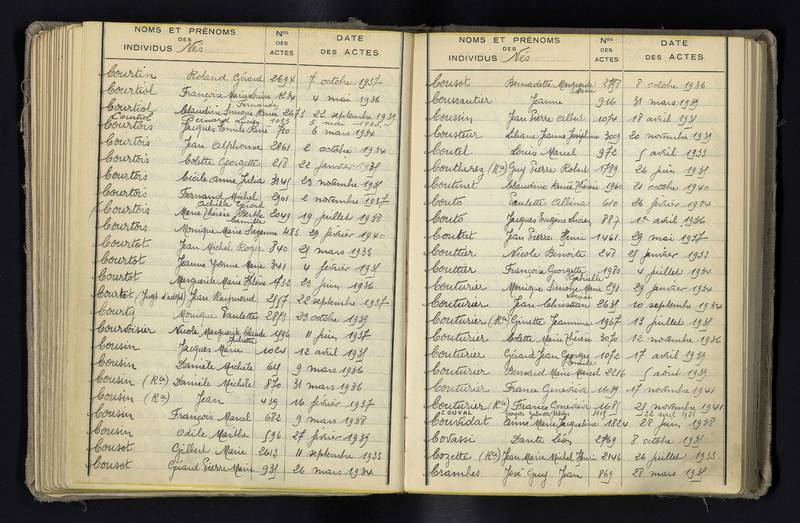 NOMS ET PRÉNOMS DES INDIVIDUS Nés
Nos DES ACTES
DATE DES ACTES
Courtin Roland Gérard 2694 7 octobre 1937
Courtiol Françoise 4 mai 1936
Fernande
Courtiol Claudine Simone Renée 2673 22 septembre 1939
Courtiol Bernard Lucien 1095 5 mai
Courtois Jacques Emile René 710 6 mars 1934
Courtois Jean Alphonse 2861 2 octobre 1934
Courtois Colette Georgette 218 22 janvier
Courtois Cécile Annie Julia 3141 23 novembre
Courtois Fernand Michel 2901 2 novembre 1937
Achille Gérard
Courtois Marie Thérèse Berthe 2049 19 juillet 1938
Camille
Courtois Monique Marie Suzanne 485 29 février 1940
Courtot Jean Michel Roger 840 21 mars 1933
Courtot Jeanne Yvonne Marie 341 4 février
Courtot Marguerite Marie Hélène 1733 20 juin 1936
Courtot Jean Raymond 22 septembre 1937
Courty Monique Paulette 2853 29 octobre 1939
Courvoisier Nicole Marguerite Claude 1596 11 juin 1937
Juliette
Cousin Jacques Marie 1024 12 avril
Cousin Danièle Michèle 9 mars 1936
Cousin (Rn) Danièle Michèle 870 31 mars 1936
Cousin (Rn) Jean 439 16 février 1937
Cousin François Marcel 682 9 mars 1938
Cousin Odile Marthe 596 27 février 1939
Cousot Gilbert Marie 2613 11 septembre 1933
Cousot Gérard Pierre Marie 931 26 mars 1934
NOMS ET PRÉNOMS DES INDIVIDUS Nés
Nos DES ACTES
DATE DES ACTES
Cousot Bernadette Marguerite 8 octobre 1936
Marie
Coussautier Jeanne 916 31 mars 1939
Coussin Jean Pierre Albert 1074 18 avril
Cousteur Liliane Jeanne Joséphine 3009 20 novembre
Coutel Louis Marcel 972 5 avril 1933
Coutherez (Rn) Guy Pierre Robert 1789 26 juin
Coutinet Claudine Renée Thérèse 1960 21 octobre 1940
Couto Paulette Albina 610 26 février 1934
Couto Jacques Eugène Lucien 887 1er avril 1936
Coutret Jean Pierre Henri 1461 29 mai 1937
Couttier Nicole Benoite 248 25 janvier 1933
Couttier Françoise Georgette 1980 4 juillet 1934
Gabrielle
Couturier Monique Simone Marie 291 29 janvier 1934
Louise
Couturier Jean Christian 10 septembre 1934
Couturier (Rn) Ginette Jeannine 1967 13 juillet
Couturier Colette Marie Thérèse 3070 12 novembre 1936
Couturier Gérard Jean Georges 1072 17 avril 1939
Emile
Couturier Bernard Marie Marcel 2216 5 août 1939
Couturier France Geneviève 1639 17 novembre 1941
Couturier (Rn) France Geneviève 28 novembre 1941
COUVAL 1119 22 avril 1936
Couvidat Anne Marie Jacqueline 1824 28 juin 1938
Covassi Dante Léon 2769 8 octobre
Cozette (Rn) Jean Marie Michel Henri 2146 26 juillet 1933
Crambes José Guy Jean 869 28 mars